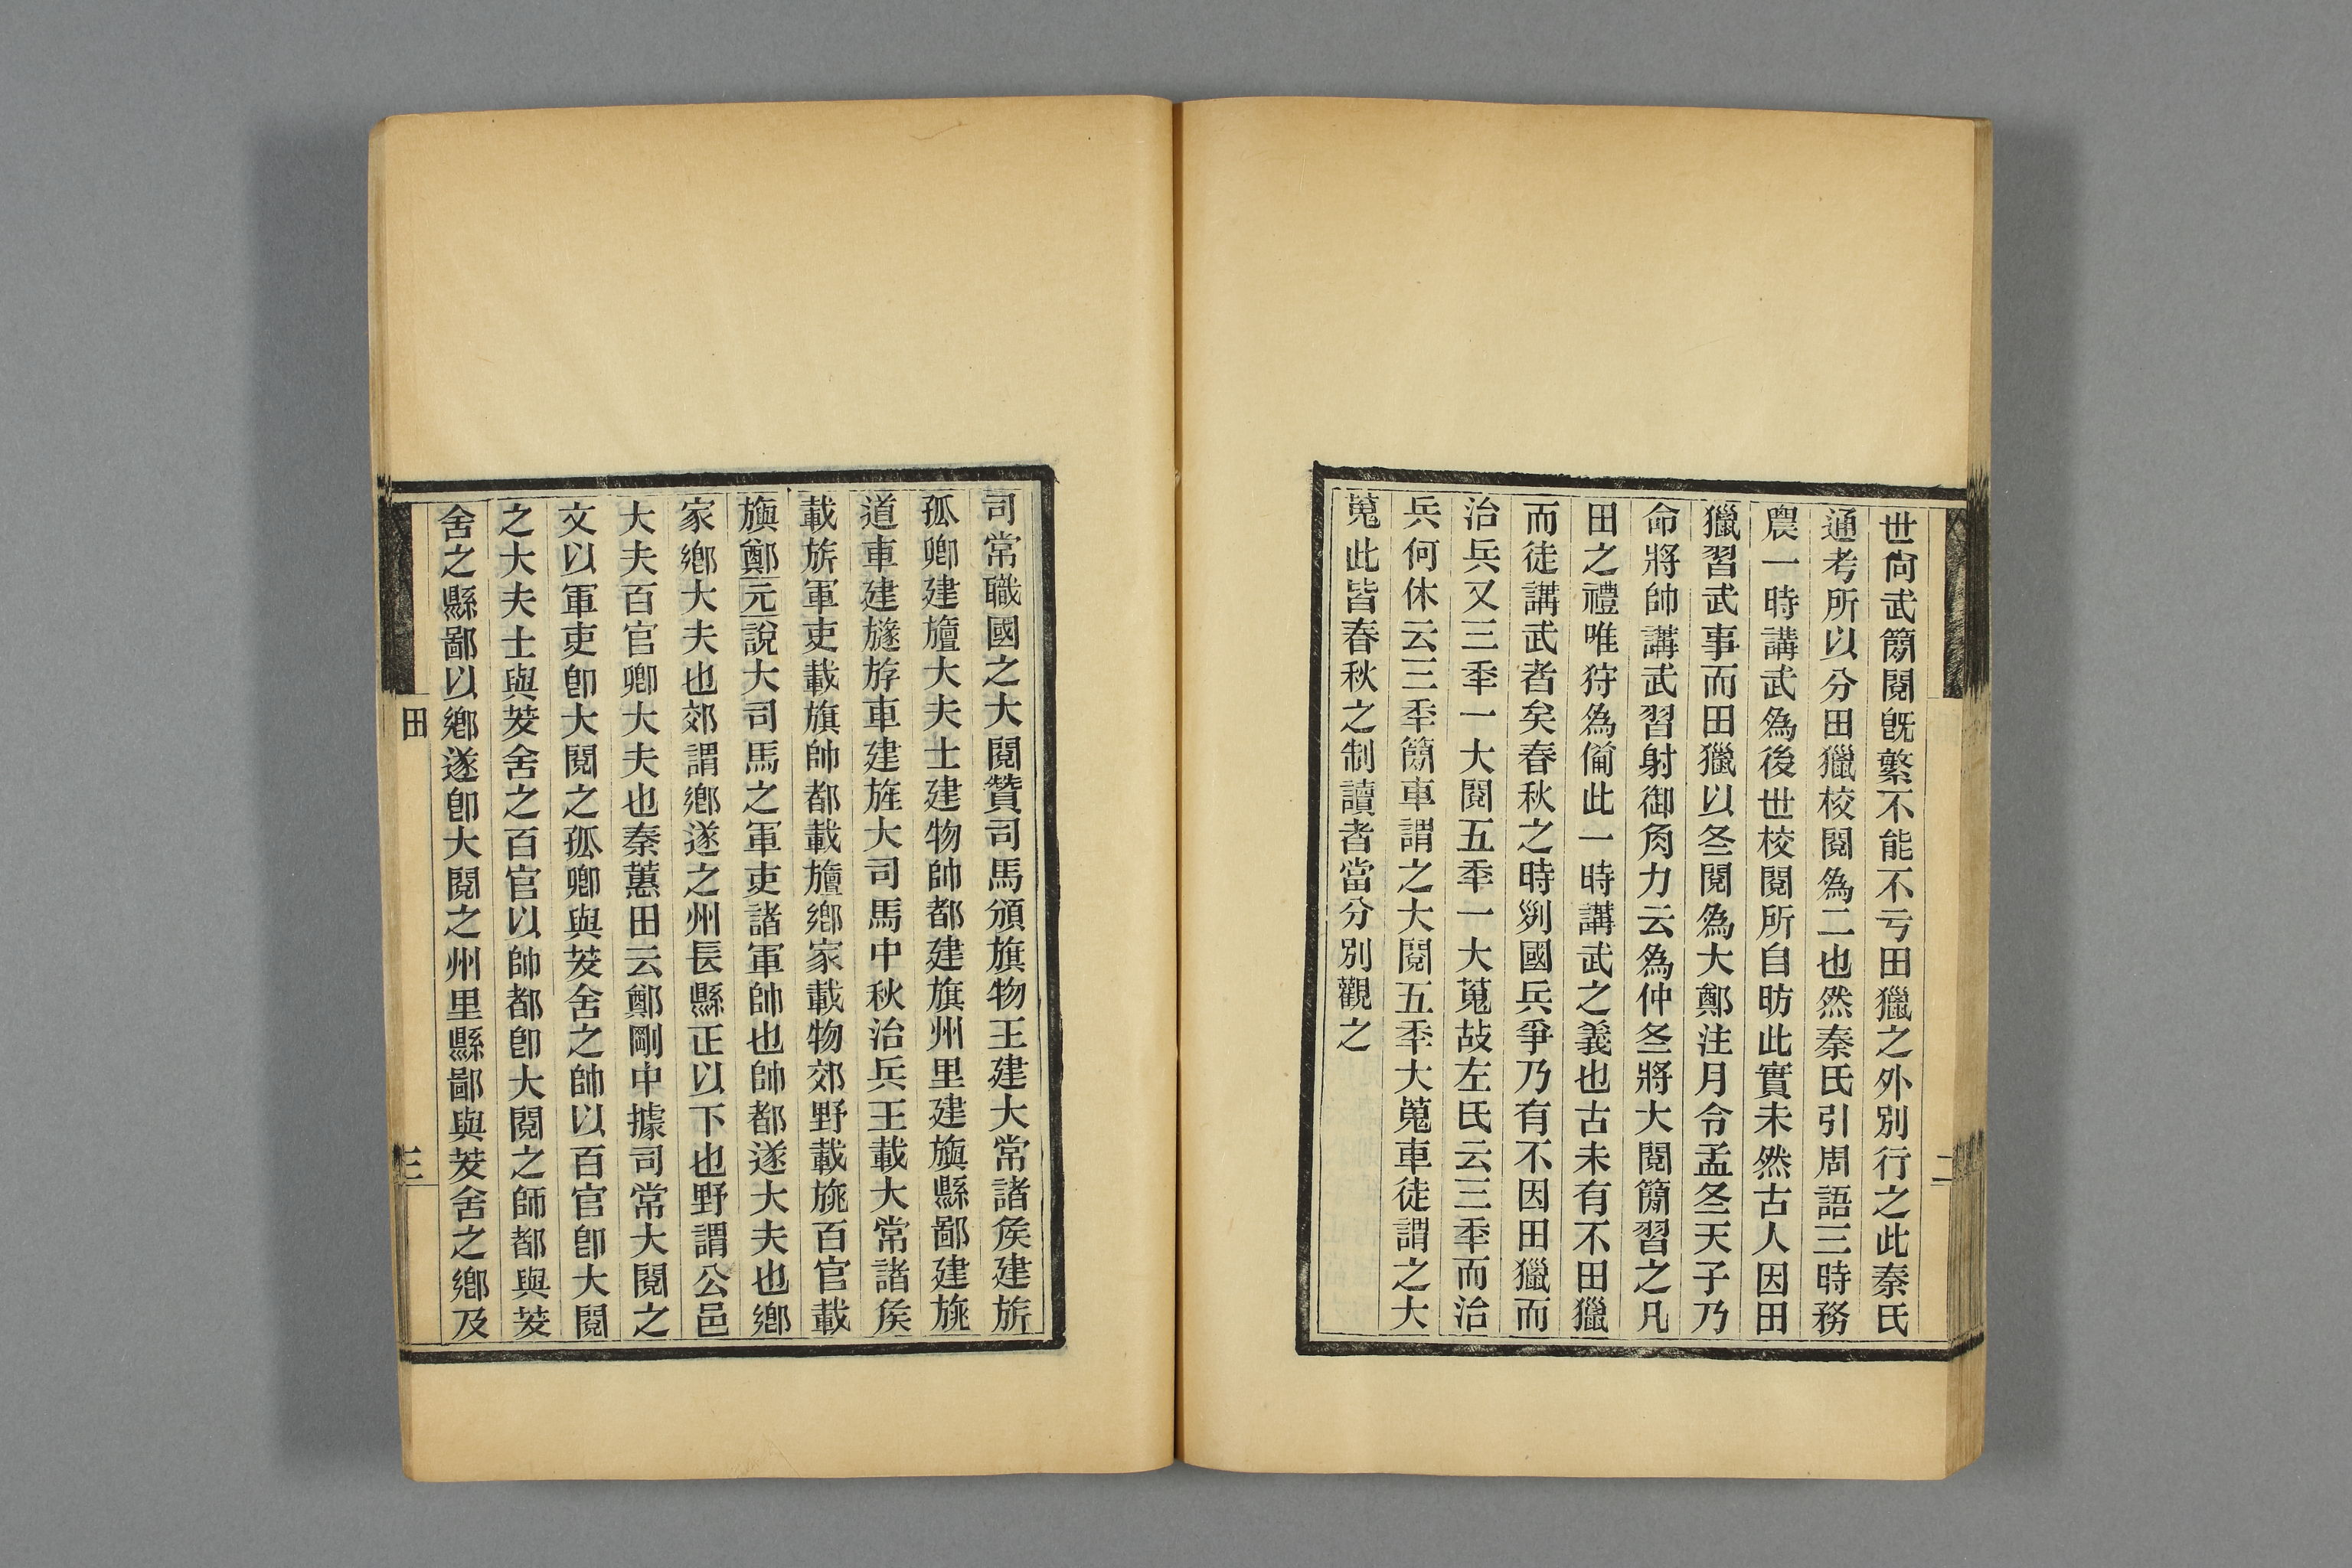 世尙武簡閱旣繁不能不亏田獵之外別行之此秦氏
通考所以分田獵校閱爲二也然秦氏引周語三時務
農一時講武爲後世校閱所自昉此實未然古人因田
獵習武事而田獵以冬閱爲大鄭注月令孟冬天子乃
命將帥講武習射御角力云爲仲冬將大閱簡習之凡
田之禮唯狩爲僃此一時講武之義也古未有不田獵
而徒講武者矣春秋之時列國兵爭乃有不因田獵而
治兵又三秊一大閱五秊一大蒐故左氏云三秊而治
兵何休云三秊簡車謂之大閱五秊大蒐車徒謂之大
蒐此皆春秋之制讀者當分別觀之
二
司常職國之大閱贊司馬頒旗物王建大常諸矦建旂
孤卿建旜大夫士建物帥都建旗州里建旟縣鄙建旐
道車建旞斿車建旌大司馬中秋治兵王載大常諸矦
載旂軍吏載旗帥都載旜鄉家載物郊野載旐百官載
旟鄭元說大司馬之軍吏諸軍帥也帥都遂大夫也鄉
家鄉大夫也郊謂鄉遂之州長縣正以下也野謂公邑
大夫百官卿大夫也秦蕙田云鄭剛中據司常大閱之
文以軍吏卽大閱之孤卿與茇舍之帥以百官卽大閱
之大夫士與茇舍之百官以帥都卽大閱之師都與茇
舍之縣鄙以鄉遂卽大閱之州里縣鄙與茇舍之鄉及
田
三